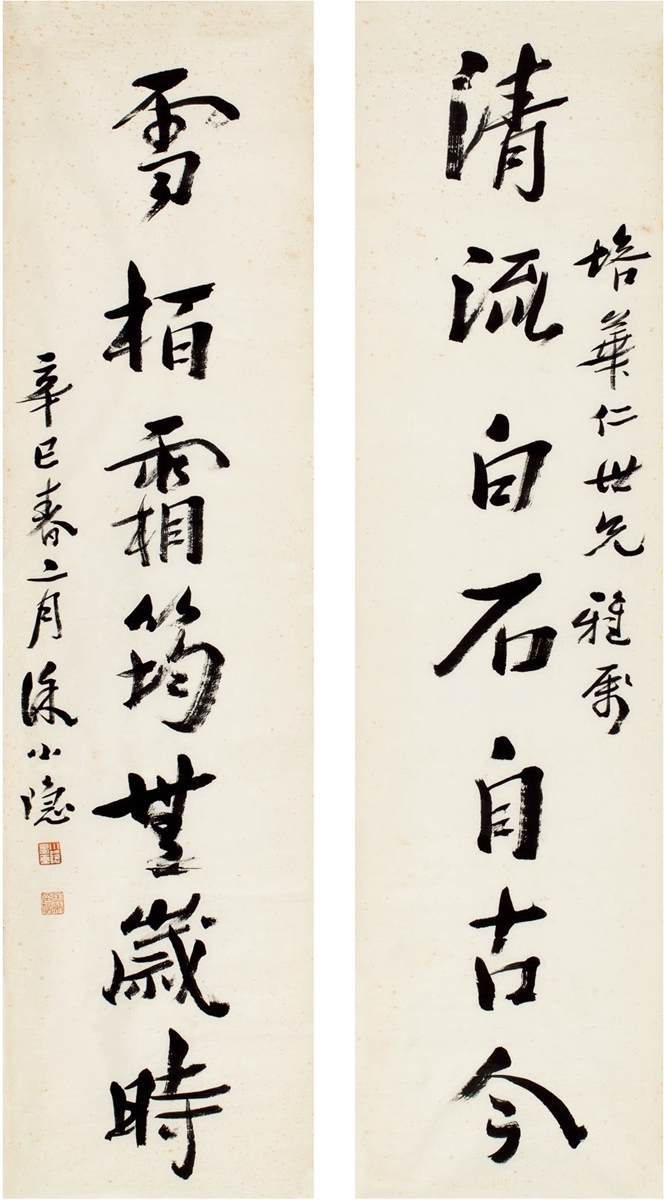 培華仁世兄雅屬
清流白石自古今
雪柏霜筠無歲時
辛巳春二月徐小隱